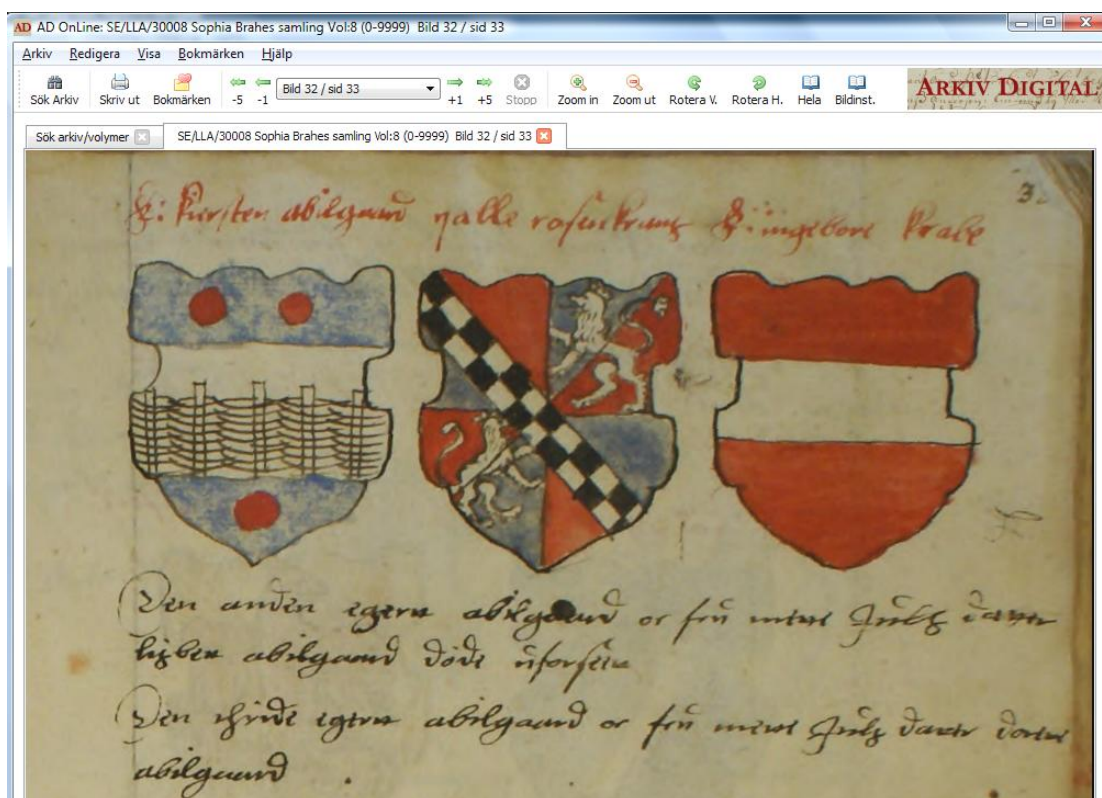 AD OnLine: SE/LLA/30008 Sophia Brahes samling Vol:8 (0-9999) Bild 32 / sid 33
Arkiv Redigera Visa Bokmärken Hjälp
Sök Arkiv Skriv ut Bokmärken -5 -1 Bild 32 / sid 33 +1 +5 Stopp Zoom in Zoom ut Rotera V. Rotera H. Hela Bildinst. ARKIV DIGITAL
Sök arkiv/volymer SE/LLA/30008 Sophia Brahes samling Vol:8 (0-9999) Bild 32 / sid 33
kirsten abilgaard palle rosenkrantz ingebore krabe
Den anden egern abilgaard oc fru mere Julz
lizben abilgaard døde
Den thride egern abilgaard oc fru mere Julz
abilgaard